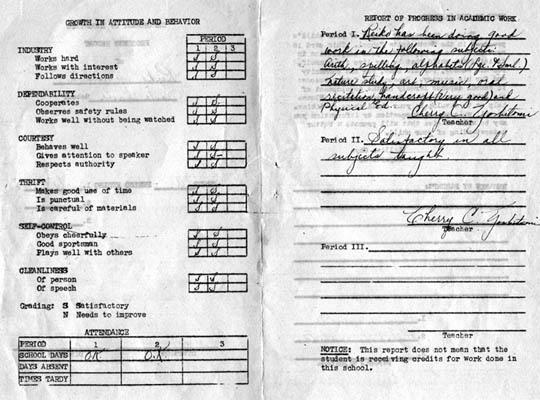 GROWTH IN ATTITUDE AND BEHAVIOR
PERIOD
1 2 3
INDUSTRY
Works hard S S
Works with interest S S
Follows directions S S
DEPENDABILITY
Cooperates S S
Observes safety rules S S
Works well without being watched S S
COURTESY
Behaves well S S
Gives attention to speaker S S-
Respects authority S S
THRIFT
Makes good use of time S S
Is punctual S S
Is careful of materials S S
SELF-CONTROL
Obeys cheerfully S S
Good sportsman S S
Plays well with others S S
CLEANLINESS
Of person S S
Of speech S S
Grading: S Satisfactory
N Needs to improve
ATTENDANCE
PERIOD 1 2 3
SCHOOL DAYS O.K O.K
DAYS ABSENT
TIMES TARDY
REPORT OF PROGRESS IN ACADEMIC WORK
Period I. Reiko has been doing good
work in the following subjects:
arith, spelling, alphabets
nature study, art, music, oral
recitation, handcraft (very good) and
Physical Ed.
Cherry C.
Teacher
Period II. Satisfactory in all
subjects taught
Cherry C.
Teacher
Period III.
Teacher
NOTICE: This report does not mean that the
student is receiving credits for work done in
this school.